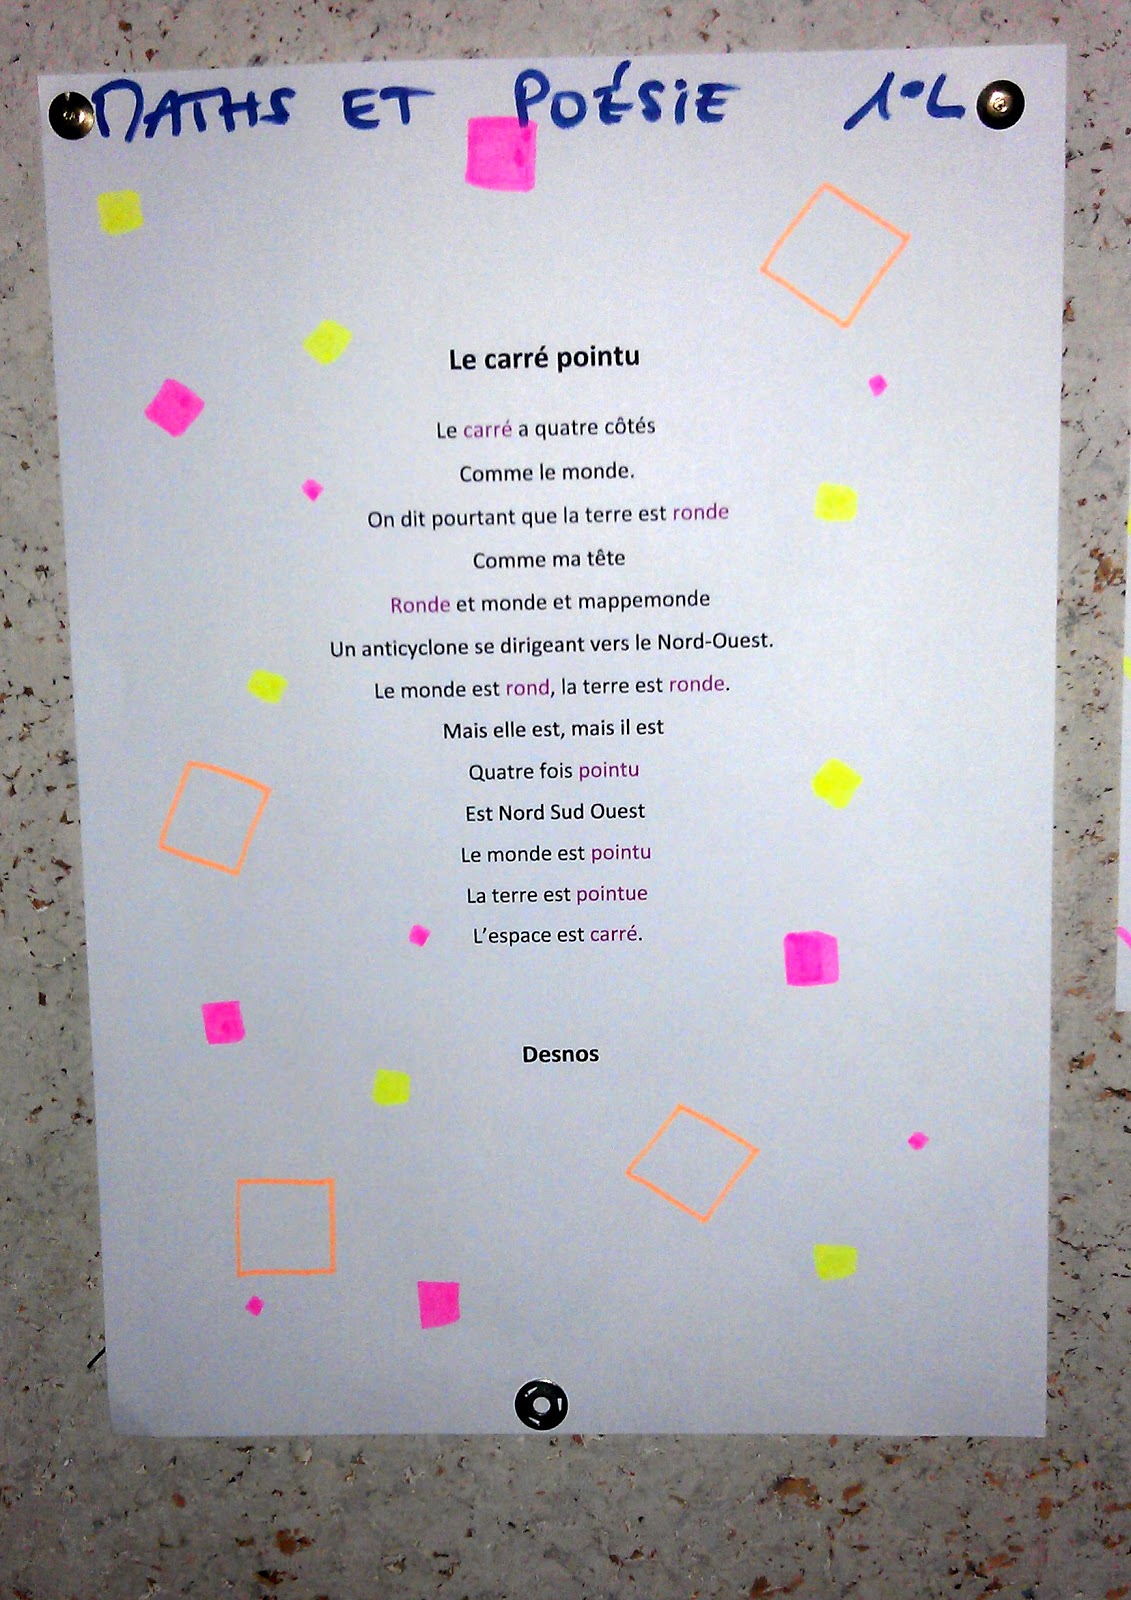 MATHS ET POÉSIE 1°L
Le carré pointu
Le carré a quatre côtés
Comme le monde.
On dit pourtant que la terre est ronde
Comme ma tête
Ronde et monde et mappemonde
Un anticyclone se dirigeant vers le Nord-Ouest.
Le monde est rond, la terre est ronde.
Mais elle est, mais il est
Quatre fois pointu
Est Nord Sud Ouest
Le monde est pointu
La terre est pointue
L’espace est carré.
Desnos